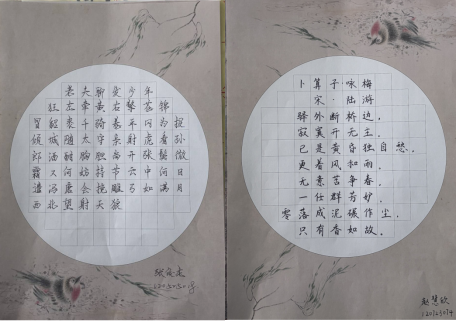 老夫聊发少年
狂左牵黄右擎苍锦
帽貂裘千骑卷平冈为报
倾城随太守亲射虎看孙
郎酒酣胸胆尚开张鬓微
霜又何妨持节云中何日
遣冯唐会挽雕弓如满月
西北望射天狼
卜算子咏梅
宋·陆游
驿外断桥边，
寂寞开无主。
已是黄昏独自愁，
更着风和雨。
无意苦争春，
一任群芳妒。
零落成泥碾作尘，
只有香如故。